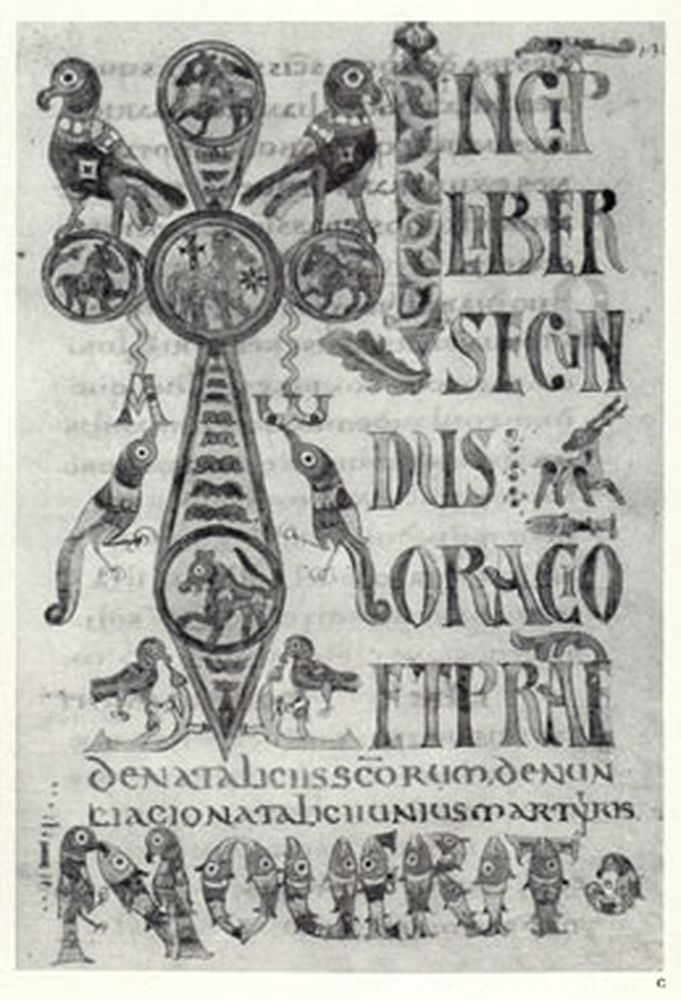 INCIP̅
LIBER
SECUN
DUS
M ω
ORACIO̅
ET PRAE̅
DE NATALICIIS SC̅ORUM, DENUN
TIACIO NATALICII UNIUS MARTYRIS.
NOUERIT
C